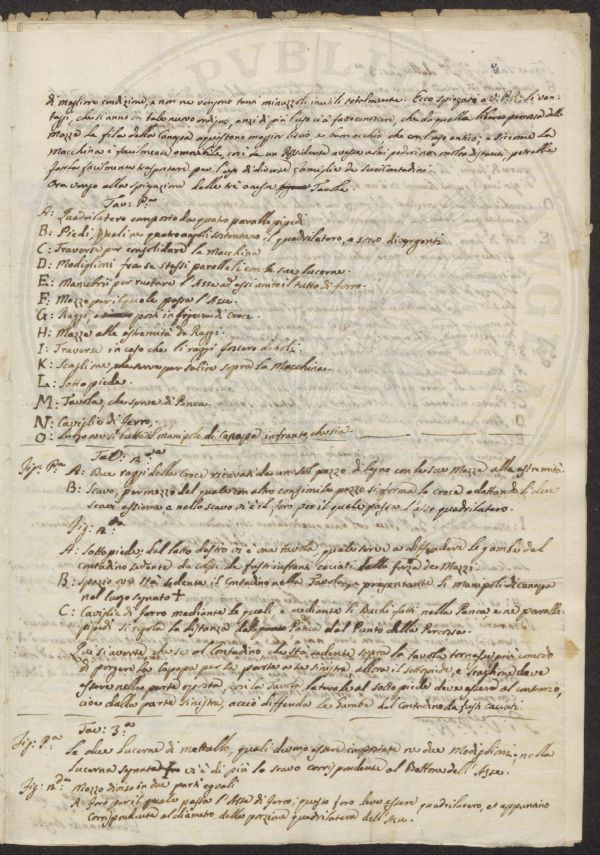 di megliore condizione, e non ne vengono tanti minuzzoli inutili totalmente. Ecco spiegato a li van-
taggi, che si anno da tale nuovo ordine, anzi di più l'uso ci à fatto conoscere, che da quella libera percossa delle
Mazze le fila della Canapa acquistano maggior lucio e buon occhio che con l'uso antico, e siccome la
Macchina è facilmente amovibile, così da un Residente
farla facilmente trasportare per l'uso di diverse famiglie de suoi contadini.
Ora vengo alla spiegazione delle tre annesse Tavole.
Tav: P.ma
A: Quadrilatero composto da quatro paralellepipedi
B: Piedi, quali ne quatro angoli sostentano il quadrilatero, e sono divergenti
C: Traverse per consolidare la Macchina
D: Modiglioni fra se stessi paralelli con le sue lucerne.
E: Manubri per ruotare l'Asse ad essi unito il tutto di ferro.
F: Mozzo per il quale passa l'Asse.
G: Raggi, posti in figura di Croce.
H: Mazze alla estremità de Raggi.
I: Traverse in caso che li raggi fossero deboli.
K: Scaglione, che serve per salire sopra la Macchina.
L: Sottopiede.
M: Tavola, che serve di Panca.
N: Caviglie di ferro.
O: Luogo ove si butta il manipolo di canapa infranto che sia.
Tav: 2.da
Fig: P.ma A: Due raggi della Croce ricavati da un sol pezzo di legno con le sue Mazze alla estremità.
B: Scavo, per mezzo del quale con altro consimile pezzo si forma la croce adattando li due
scavi assieme, e nello scavo vi è il foro per il quale passa l'asse quadrilatero.
Fig: 2.da
A: Sottopiede; dal lato destro vi è una tavola, quale serve a diffendere le gambe del
contadino sedente da colpi de fusti infranti cacciati dalla forza de Mazzi.
B: Spazio ove sta sedente il Contadino nella Tavola, e presentante li manipoli di canapa
nel luogo segnato +
C: Caviglie di ferro mediante le quali, e mediante li Buchi fatti nella Panca, e ne paralle-
pipedi si regola la distanza della Panca dal Punto della Percossa.
Qui si averte, che se al Contadino che sta sedente sopra la tavola tornasse più comodo
di porgere la Canapa per la parte a se sinistra allora il sottopiede, e scaglione deve
essere nella parte opposta, con la tavola laterale al sottopiede deve essere al contrario,
cioè dalla parte sinistra, acciò diffenda le Gambe del Contadino da fusti cacciati.
Tav: 3.a
Fig: P.ma Le due Lucerne di mettallo, quali devono essere incastrate ne due Modiglioni; nella
Lucerna segnata vi è di più lo scavo corrispondente al Bottone dell'Asse.
Fig: 2.da Mozzo diviso in due parti eguali
A: Foro per il quale passa l'Asse di ferro; questo foro deve essere quadrilatero, et appuntino
corrispondente al diametro della porzione quadrilatera dell'Asse.